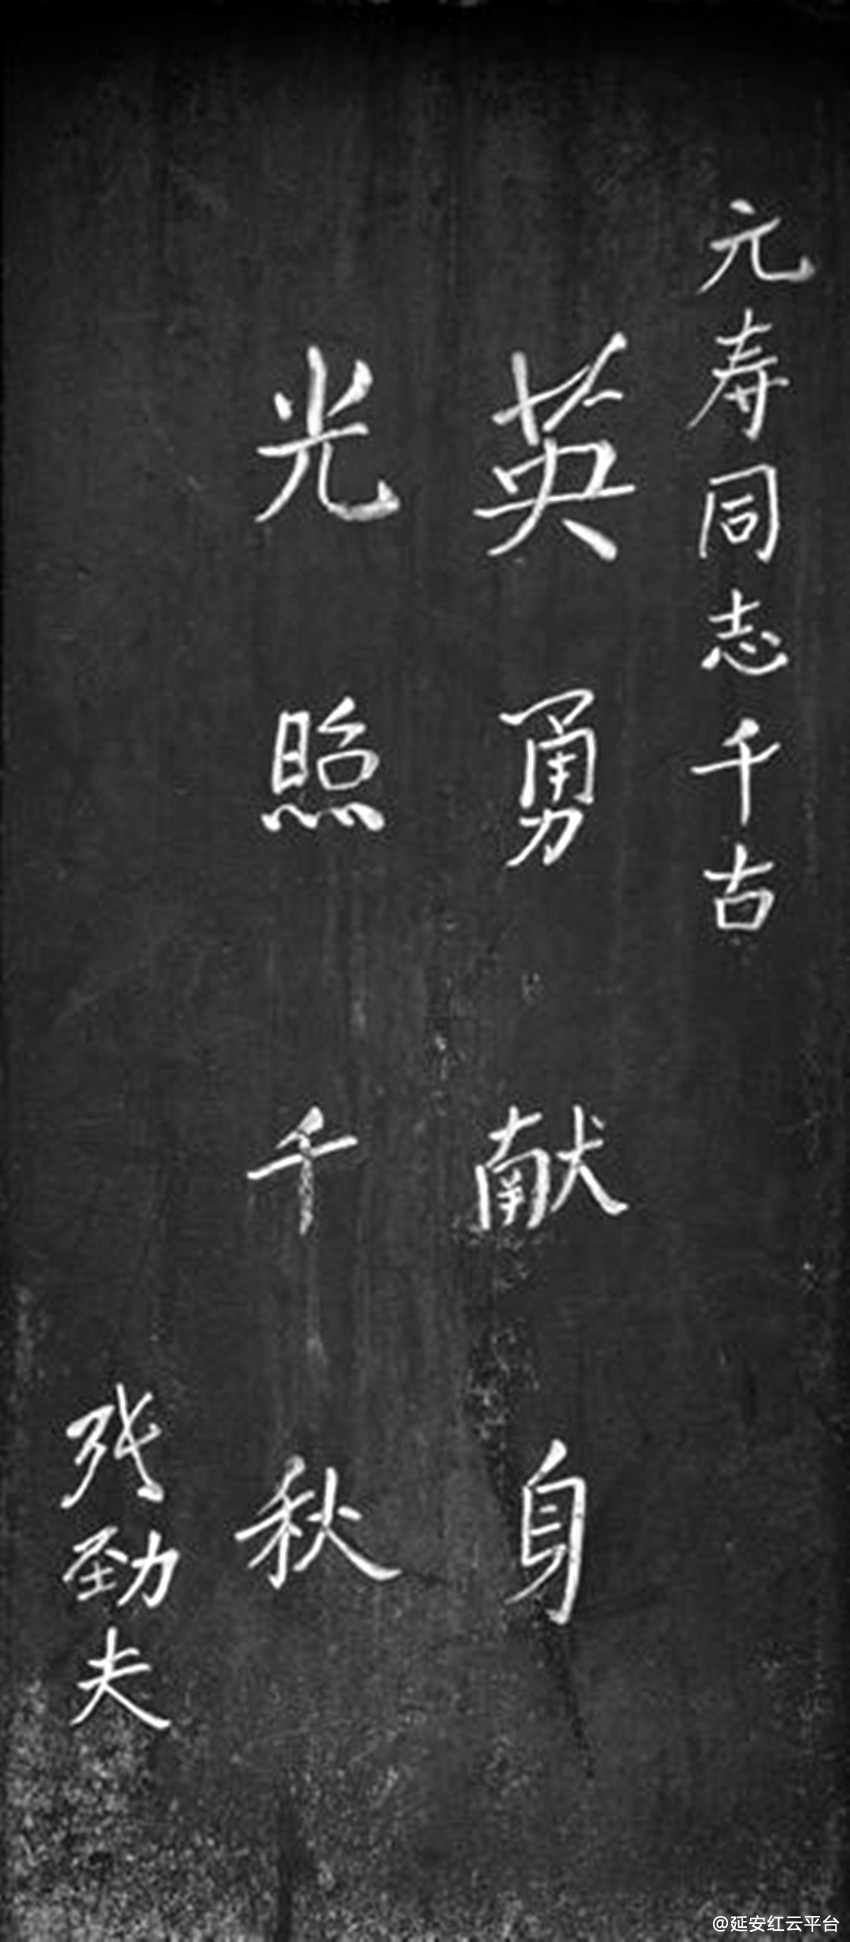 元寿同志千古
英勇献身
光照千秋
张劲夫
@延安红云平台